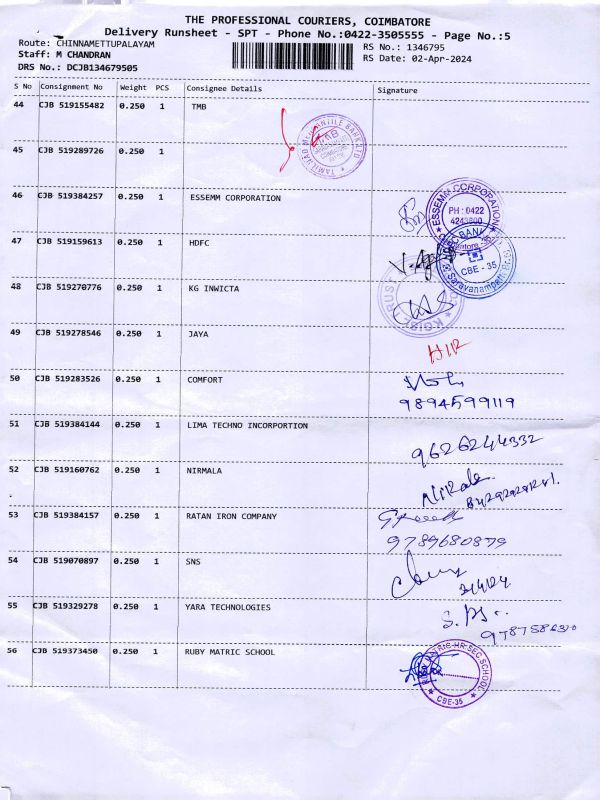 THE PROFESSIONAL COURIERS, COIMBATORE
Delivery Runsheet - SPT - Phone No.:0422-3505555 - Page No.:5
Route: CHINNAMETTUPALAYAM
RS No.: 1346795
Staff: M CHANDRAN
RS Date: 02-Apr-2024
DRS No.: DCJB134679505
S No Consignment No Weight PCS Consignee Details Signature
44 CJB 519155482 0.250 1 TMB
TAMILNAD MERCANTILE BANK LTD
45 CJB 519289726 0.250 1
46 CJB 519384257 0.250 1 ESSEMM CORPORATION
ESSEMM CORPORATION
PH : 0422
4243800
47 CJB 519159613 0.250 1 HDFC
CBE - 35
48 CJB 519270776 0.250 1 KG INWICTA
49 CJB 519278546 0.250 1 JAYA
50 CJB 519283526 0.250 1 COMFORT
9894599119
51 CJB 519384144 0.250 1 LIMA TECHNO INCORPORTION
9626244332
52 CJB 519160762 0.250 1 NIRMALA
53 CJB 519384157 0.250 1 RATAN IRON COMPANY
9789680879
54 CJB 519070897 0.250 1 SNS
55 CJB 519329278 0.250 1 YARA TECHNOLOGIES
56 CJB 519373450 0.250 1 RUBY MATRIC SCHOOL
CBE-35